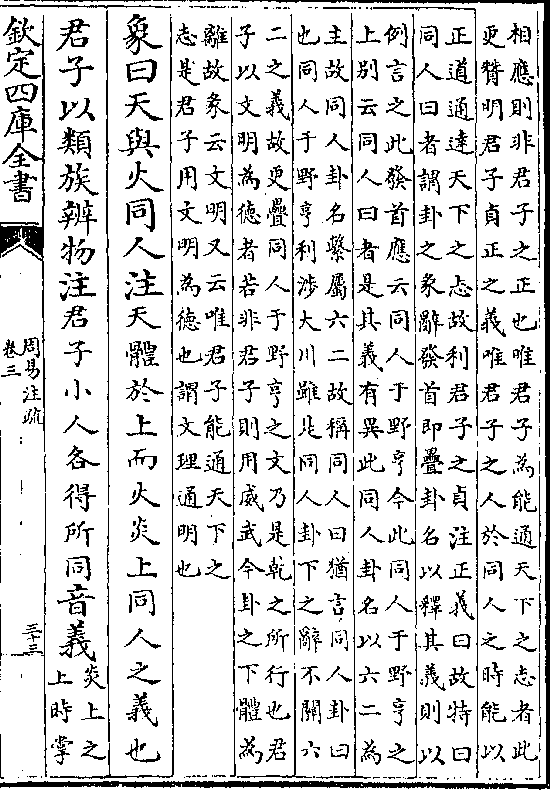 相應則非君子之正也唯君子為能通天下之志者此
更贊明君子貞正之義唯君子之人於同人之時能以
正道通達天下之志故利君子之貞注正義曰故特曰
同人曰者謂卦之彖辭發首即疊卦名以釋其義則以
例言之此發首應云同人于野亨今此同人于野亨之
上別云同人曰者是其義有異此同人卦名以六二為
主故同人卦名繫屬六二故稱同人曰猶言同人卦曰
也同人于野亨利涉大川雖是同人卦下之辭不關六
二之義故更疊同人于野亨之文乃是乾之所行也君
子以文明為德者若非君子則用威武今卦之下體為
離故彖云文明又云唯君子能通天下之
志是君子用文明為德也謂文理通明也
象曰天與火同人注天體於上而火炎上同人之義也
君子以類族辨物注君子小人各得所同音義
炎上之
上時掌
欽定四庫全書
周易注疏
卷三
三十三